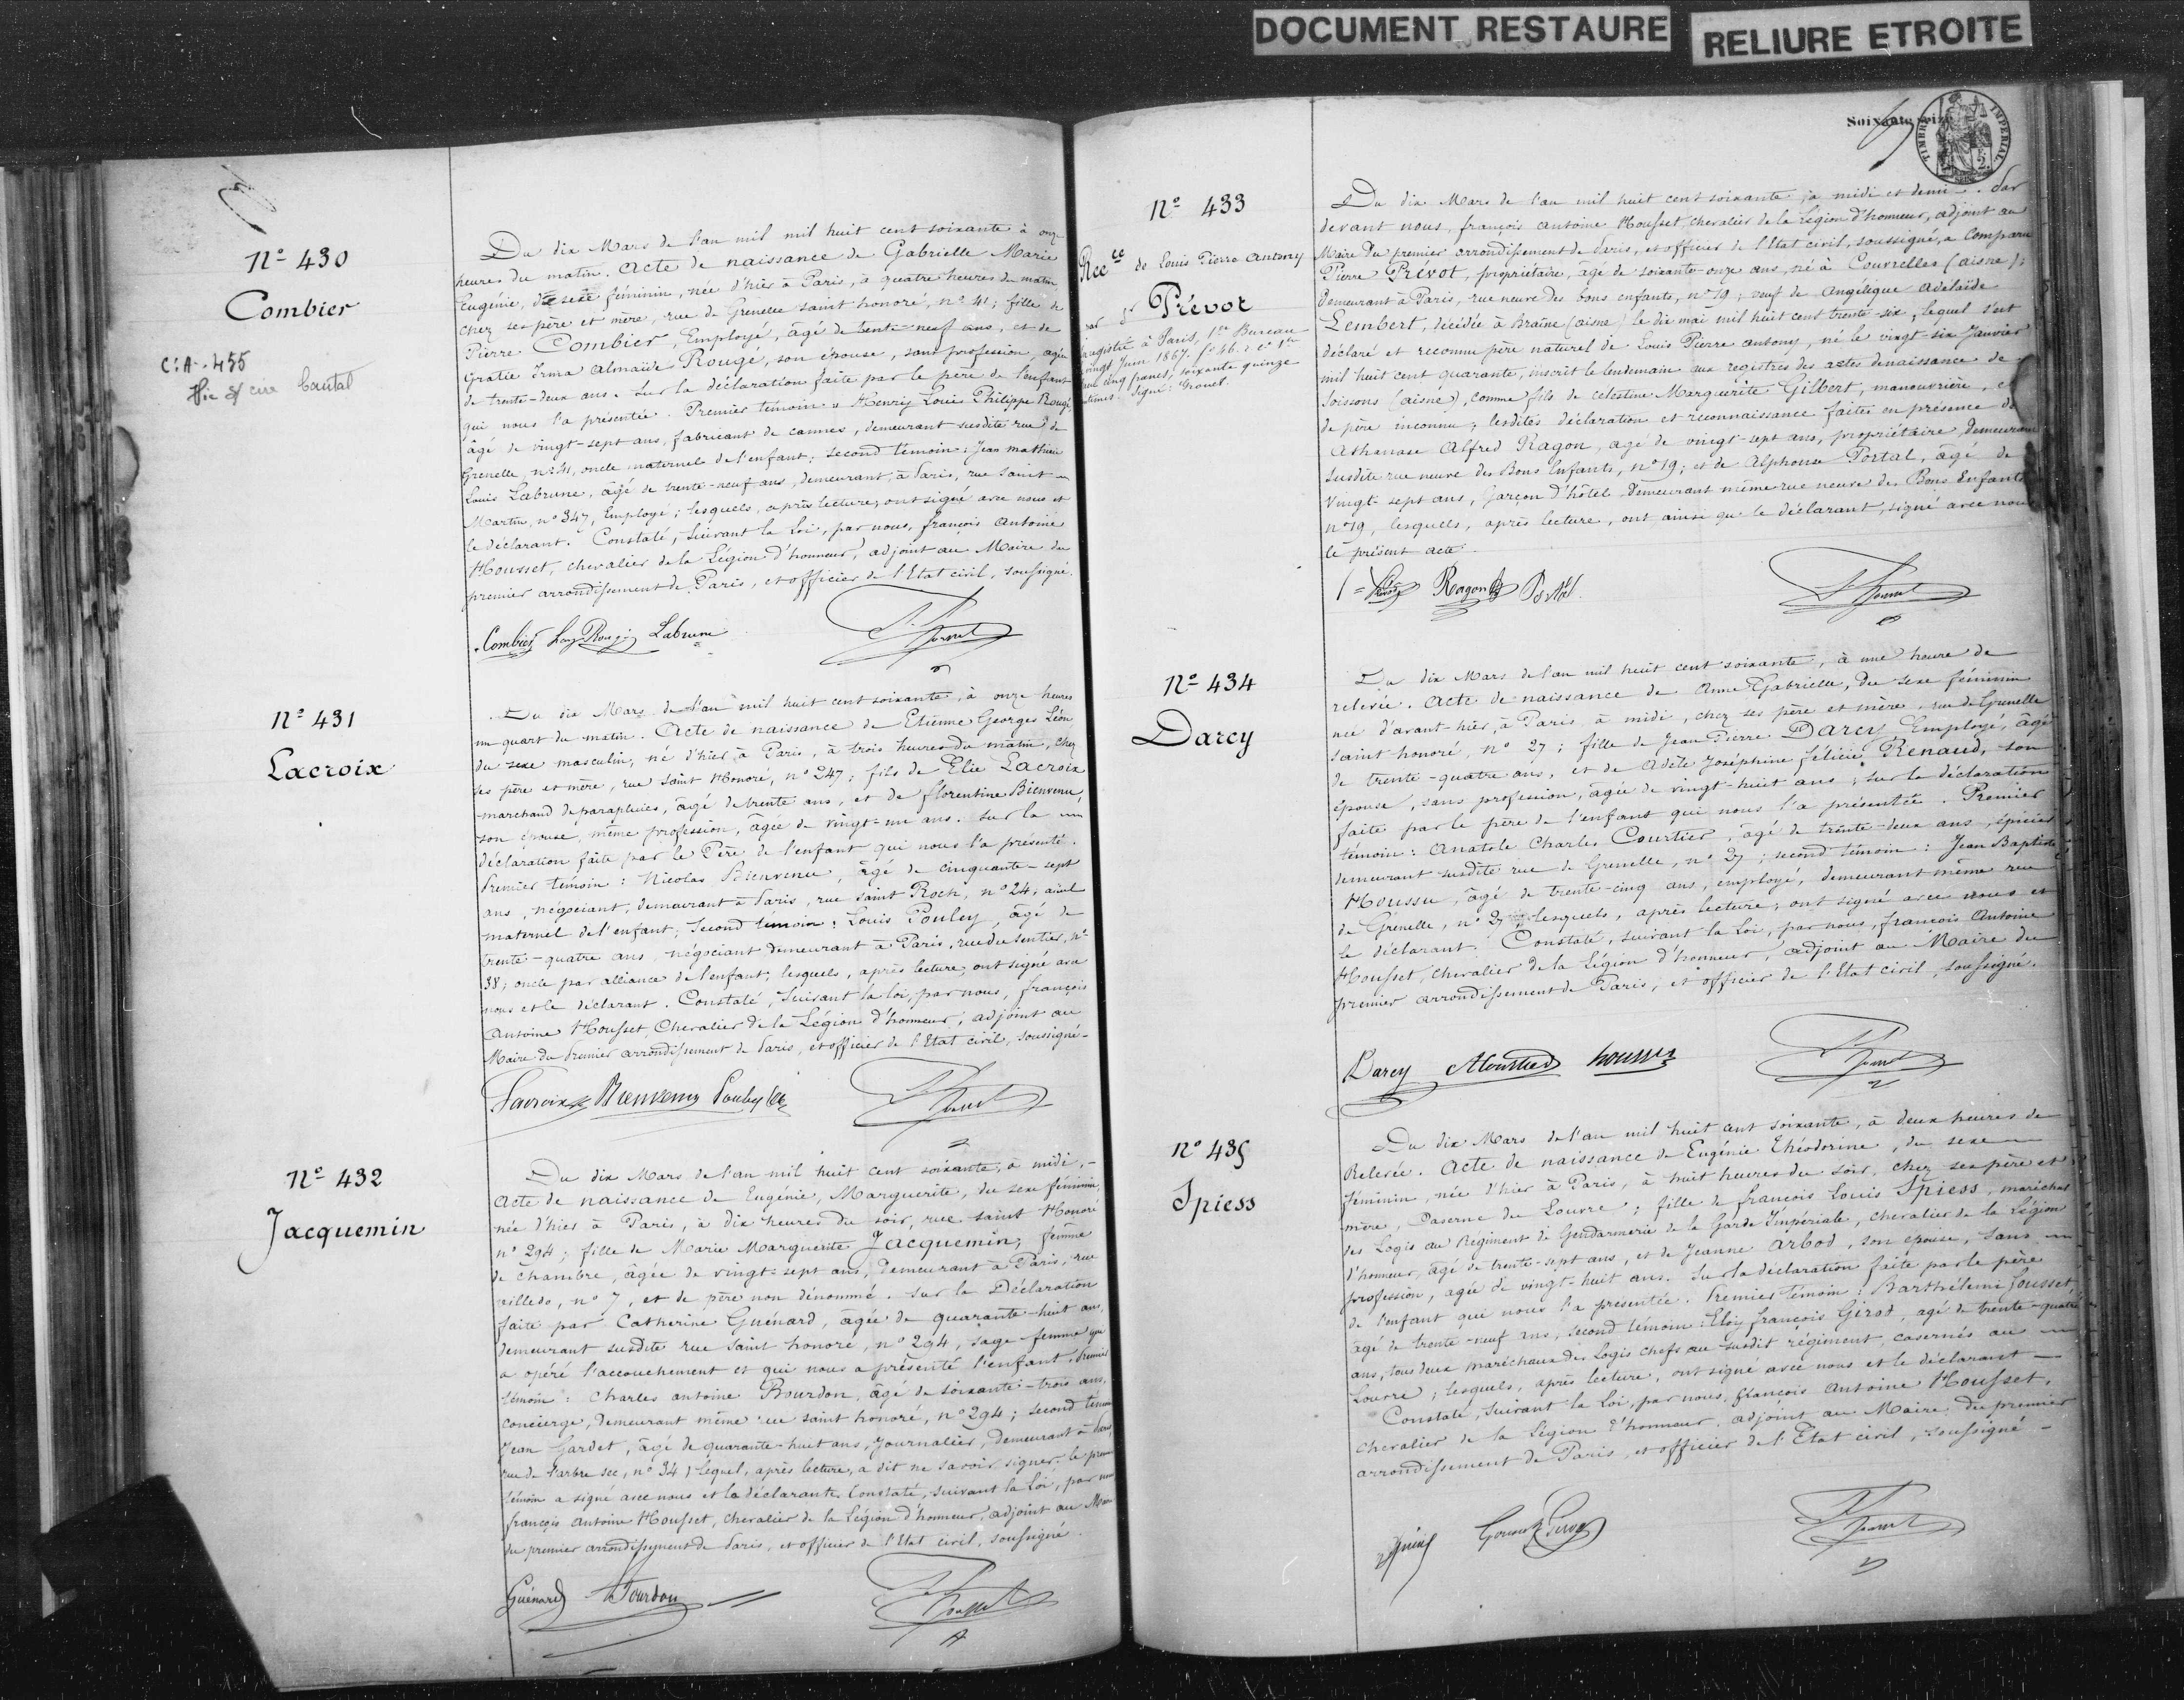 DOCUMENT RESTAURE
RELIURE ETROITE
Nº 430
Combier
C:A. 455
Cantal
Du dix Mars de l'an mil mil huit cent soixante à onze
heures du matin. Acte de naissance de Gabrielle Marie
Eugénie, du sexe féminin, née d'hier à Paris, à quatre heures du matin,
chez ses père et mère, rue de Grenelle saint honoré, nº 41; fille de
Pierre Combier, Employé, âgé de trente-neuf ans, et de
Gratie Irma Almaïde Rougé, son épouse, sans profession, agée
de trente-deux ans. Sur la déclaration faite par le père de l'enfant
qui nous l'a présentée. Premier témoin: Henry Louis Philippe Rougé,
âgé de vingt-sept ans, fabricant de cannes, demeurant susdite rue de
Grenelle, nº 41, oncle maternel de l'enfant; second témoin: Jean mathieu
Louis Labrune, âgé de trente-neuf ans, demeurant à Paris, rue Saint
Martin, nº 347, Employé; lesquels, après lecture, ont signé avec nous et
le déclarant. Constaté, suivant la Loi, par nous, françois Antoine
Housset, chevalier de la Légion d'honneur, adjoint au Maire du
premier arrondissement de Paris, et officier de l'Etat civil, soussigné.
Combier Rougé Labrune
Nº 431
Lacroix
Du dix Mars de l'an mil huit cent soixante, à onze heures
un quart du matin. Acte de naissance de Etienne Georges Léon
du sexe masculin, né d'hier à Paris, à trois heures du matin, chez
ses père et mère, rue Saint Honoré, nº 247; fils de Elie Lacroix
marchand de parapluies, âgé de trente ans, et de florentine Bienvenu,
son épouse, même profession, âgée de vingt-un ans. Sur la
déclaration faite par le Père de l'enfant qui nous l'a présenté.
Premier témoin: Nicolas Bienvenu, âgé de cinquante-sept
ans, négociant, demeurant à Paris, rue Saint Roch, nº 24, aïeul
maternel de l'enfant; Second témoin: Louis Pouley, âgé de
trente-quatre ans, négociant demeurant à Paris, rue du Sentier, nº
38; oncle par alliance de l'enfant; lesquels, après lecture, ont signé avec
nous et le déclarant. Constaté, suivant la loi, par nous, françois
Antoine Housset, Chevalier de la Légion d'honneur, adjoint au
Maire du Premier arrondissement de Paris, et officier de l'Etat civil, soussigné-
Lacroix Bienvenu Pouley
Nº 432
Jacquemin
Du dix Mars de l'an mil huit cent soixante, à midi,-
Acte de naissance de Eugénie, Marguerite, du sexe féminin,
née d'hier à Paris, à dix heures du soir, rue Saint Honoré
nº 294; fille de Marie Marguerite Jacquemin, femme
de chambre, âgée de vingt-sept ans, demeurant à Paris, rue
villedo, nº 7, et de père non dénommé. Sur la Déclaration
faite par Catherine Guénard, âgée de quarante-huit ans,
demeurant susdite rue Saint honoré, nº 294, sage-femme qui
a opéré l'accouchement et qui nous a présenté l'enfant. Premier
témoin: Charles antoine Bourdon, âgé de soixante-trois ans,
concierge, demeurant même rue saint honoré, nº 294; second témoin
Jean Gardet, âgé de quarante-huit ans, Journalier, demeurant à Paris,
rue de l'arbre sec, nº 34; lequel, après lecture, a dit ne savoir signer. le premier
témoin a signé avec nous et la déclarante. Constaté, suivant la Loi, par nous
françois Antoine Housset, chevalier de la Légion d'honneur, adjoint au Maire
du premier arrondissement de Paris, et officier de l'Etat civil, soussigné.
Guénard Bourdon
Soixante seize
TIMBRE IMPERIAL
Nº 433
Recce de Louis Pierre Antony
par Prévot
Enregistré à Paris, 1er Bureau
vingt Juin 1867. fº 46. r. cº 1er
Reçu cinq francs, soixante quinze
centimes. Signé: Granet.
Du dix Mars de l'an mil huit cent soixante, à midi et demi. Par
devant nous, françois antoine Housset, chevalier de la Légion d'honneur, adjoint au
Maire du premier arrondissement de Paris, et officier de l'Etat civil, soussigné, a Comparu
Pierre Prévot, propriétaire, âgé de soixante-onze ans, né à Couvrelles (aisne);
demeurant à Paris, rue neuve des bons enfants, nº 19; veuf de Angélique Adelaïde
Lembert, décédée à Braîne (aisne) le dix mai mil huit cent trente-six, lequel s'est
déclaré et reconnu père naturel de Louis Pierre antony, né le vingt-six Janvier
mil huit cent quarante, inscrit le lendemain aux registres des actes de naissance de
Soissons (aisne), comme fils de célestine Marguerite Gilbert, manouvrière, et
de père inconnu; lesdites déclaration et reconnaissance faites en présence de
Athanase Alfred Ragon, âgé de vingt-sept ans, propriétaire, demeurant
susdite rue neuve des Bons Enfants, nº 19; et de Alphonse Portal, âgé de
Vingt-sept ans, Garçon d'hôtel demeurant même rue neuve des Bons Enfants
nº 19, lesquels, après lecture, ont ainsi que le déclarant, signé avec nous
le présent acte.
Prévot Ragon Portal
Nº 434
Darcy
Du dix Mars de l'an mil huit cent soixante, à une heure de
relevée. Acte de naissance de Anne Gabrielle, du sexe féminin
née d'avant-hier, à Paris, à midi, chez ses père et mère, rue de Grenelle
Saint honoré, nº 27; fille de Jean Pierre Darcy Employé, âgé
de trente-quatre ans, et de Adèle Joséphine félicie Renaud, son
épouse, sans profession, âgée de vingt-huit ans; sur la déclaration
faite par le père de l'enfant qui nous l'a présentée. Premier
témoin: Anatole Charles Courtier, âgé de trente-deux ans, épicier
demeurant susdite rue de Grenelle, nº 27; second témoin: Jean Baptiste
Houssu, âgé de trente-cinq ans, employé, demeurant même rue
de Grenelle, nº 27, lesquels, après lecture, ont signé avec nous et
le déclarant. Constaté, suivant la Loi, par nous, françois Antoine
Housset, chevalier de la Légion d'honneur, adjoint au Maire du
premier arrondissement de Paris, et officier de l'Etat civil, soussigné.
Darcy
Nº 435
Spiess
Du dix Mars de l'an mil huit cent soixante, à deux heures de
Relevée. Acte de naissance de Eugénie Théodorine, du sexe
féminin, née d'hier à Paris, à huit heures du soir, chez ses père et
mère, Caserne du Louvre; fille de françois Louis Spiess, maréchal
des Logis au Régiment de Gendarmerie de la Garde Impériale, chevalier de la Légion
d'honneur, âgé de trente-sept ans, et de Jeanne Arbod, son epouse, sans
profession, agée de vingt-huit ans. Sur la déclaration faite par le père
de l'enfant qui nous l'a présentée. Premier témoin: Barthélemi Gousset,
âgé de trente-neuf ans, second témoin: Eloy françois Girod, âgé de trente-quatre
ans, tous deux maréchaux des Logis chefs au susdit régiment, casernés au
Louvre; lesquels, après lecture, ont signé avec nous et le déclarant
Constaté, suivant la Loi, par nous, françois Antoine Housset,
chevalier de la Légion d'honneur, adjoint au Maire du premier
arrondissement de Paris, et officier de l'Etat civil, soussigné-